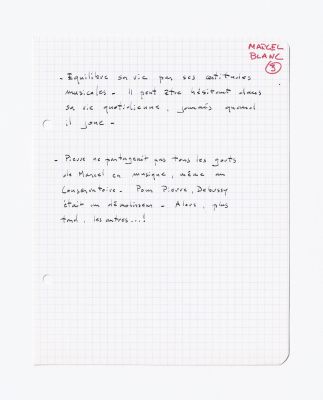 MARCEL
BLANC
3
- Equilibre sa vie par ses certitudes
musicales - Il peut être hésitant dans
sa vie quotidienne, jamais quand
il joue -
- Pierre ne partageait pas tous les goûts
de Marcel en musique, même au
Conservatoire - Pour Pierre, Debussy
était un démolisseur - Alors, plus
tard, les autres...!